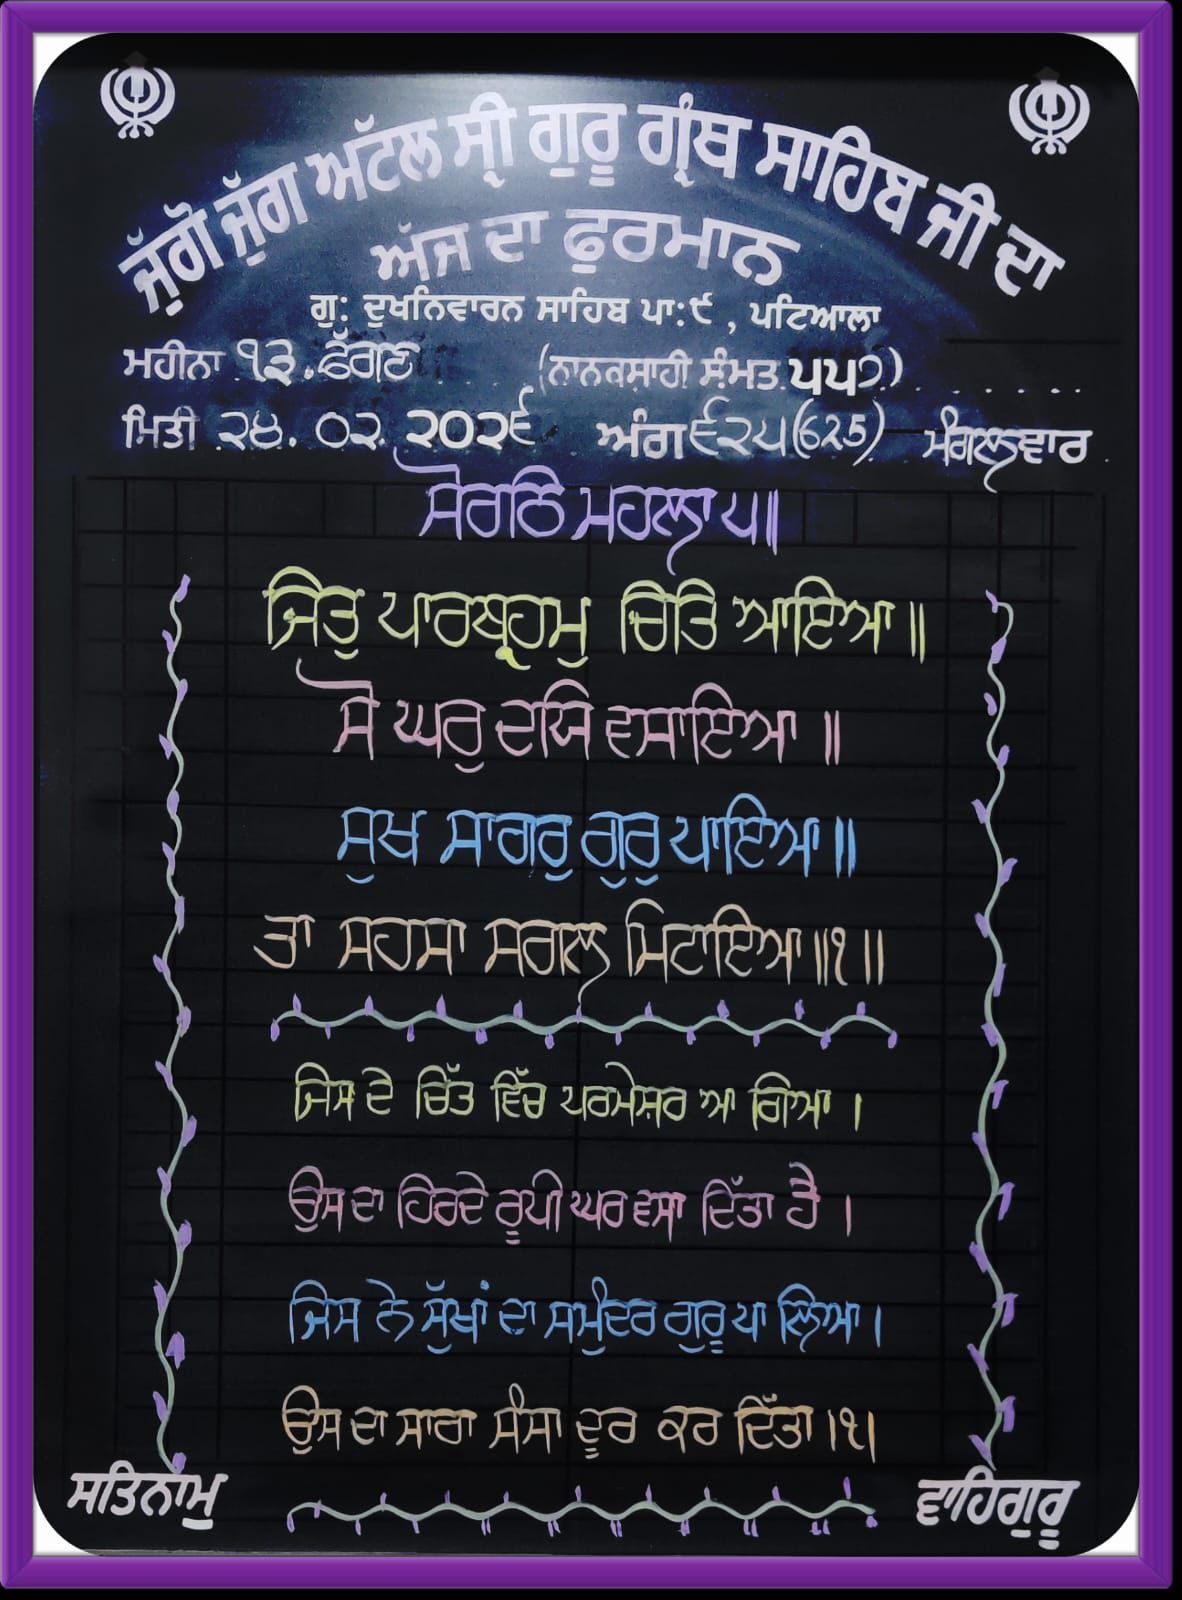 ਜੁੱਗੋ ਜੁੱਗ ਅਟੱਲ ਸ੍ਰੀ ਗੁਰੂ ਗ੍ਰੰਥ ਸਾਹਿਬ ਜੀ ਦਾ
ਅੱਜ ਦਾ ਫੁਰਮਾਨ
ਗੁ: ਦੁਖਨਿਵਾਰਨ ਸਾਹਿਬ ਪਾ:੯ , ਪਟਿਆਲਾ
ਮਹੀਨਾ ੧੩.ਫੱਗਣ (ਨਾਨਕਸ਼ਾਹੀ ਸੰਮਤ ੫੫੭)
ਮਿਤੀ ੨੪. ੦੨. ੨੦੨੬ ਅੰਗ ੬੨੫(625) ਮੰਗਲਵਾਰ
ਸੋਰਠਿ ਮਹਲਾ ੫॥
ਜਿਤੁ ਪਾਰਬ੍ਰਹਮੁ ਚਿਤਿ ਆਇਆ ॥
ਸੋ ਘਰੁ ਦਯਿ ਵਸਾਇਆ ॥
ਸੁਖ ਸਾਗਰੁ ਗੁਰੁ ਪਾਇਆ ॥
ਤਾ ਸਹਸਾ ਸਗਲ ਮਿਟਾਇਆ ॥੧॥
ਜਿਸ ਦੇ ਚਿੱਤ ਵਿੱਚ ਪਰਮੇਸ਼ਰ ਆ ਗਿਆ ।
ਉਸ ਦਾ ਹਿਰਦੇ ਰੂਪੀ ਘਰ ਵਸਾ ਦਿੱਤਾ ਹੈ ।
ਜਿਸ ਨੇ ਸੁੱਖਾਂ ਦਾ ਸਮੁੰਦਰ ਗੁਰੂ ਪਾ ਲਿਆ ।
ਉਸ ਦਾ ਸਾਰਾ ਸੰਸਾ ਦੂਰ ਕਰ ਦਿੱਤਾ ।੧।
ਸਤਿਨਾਮੁ ਵਾਹਿਗੁਰੂ